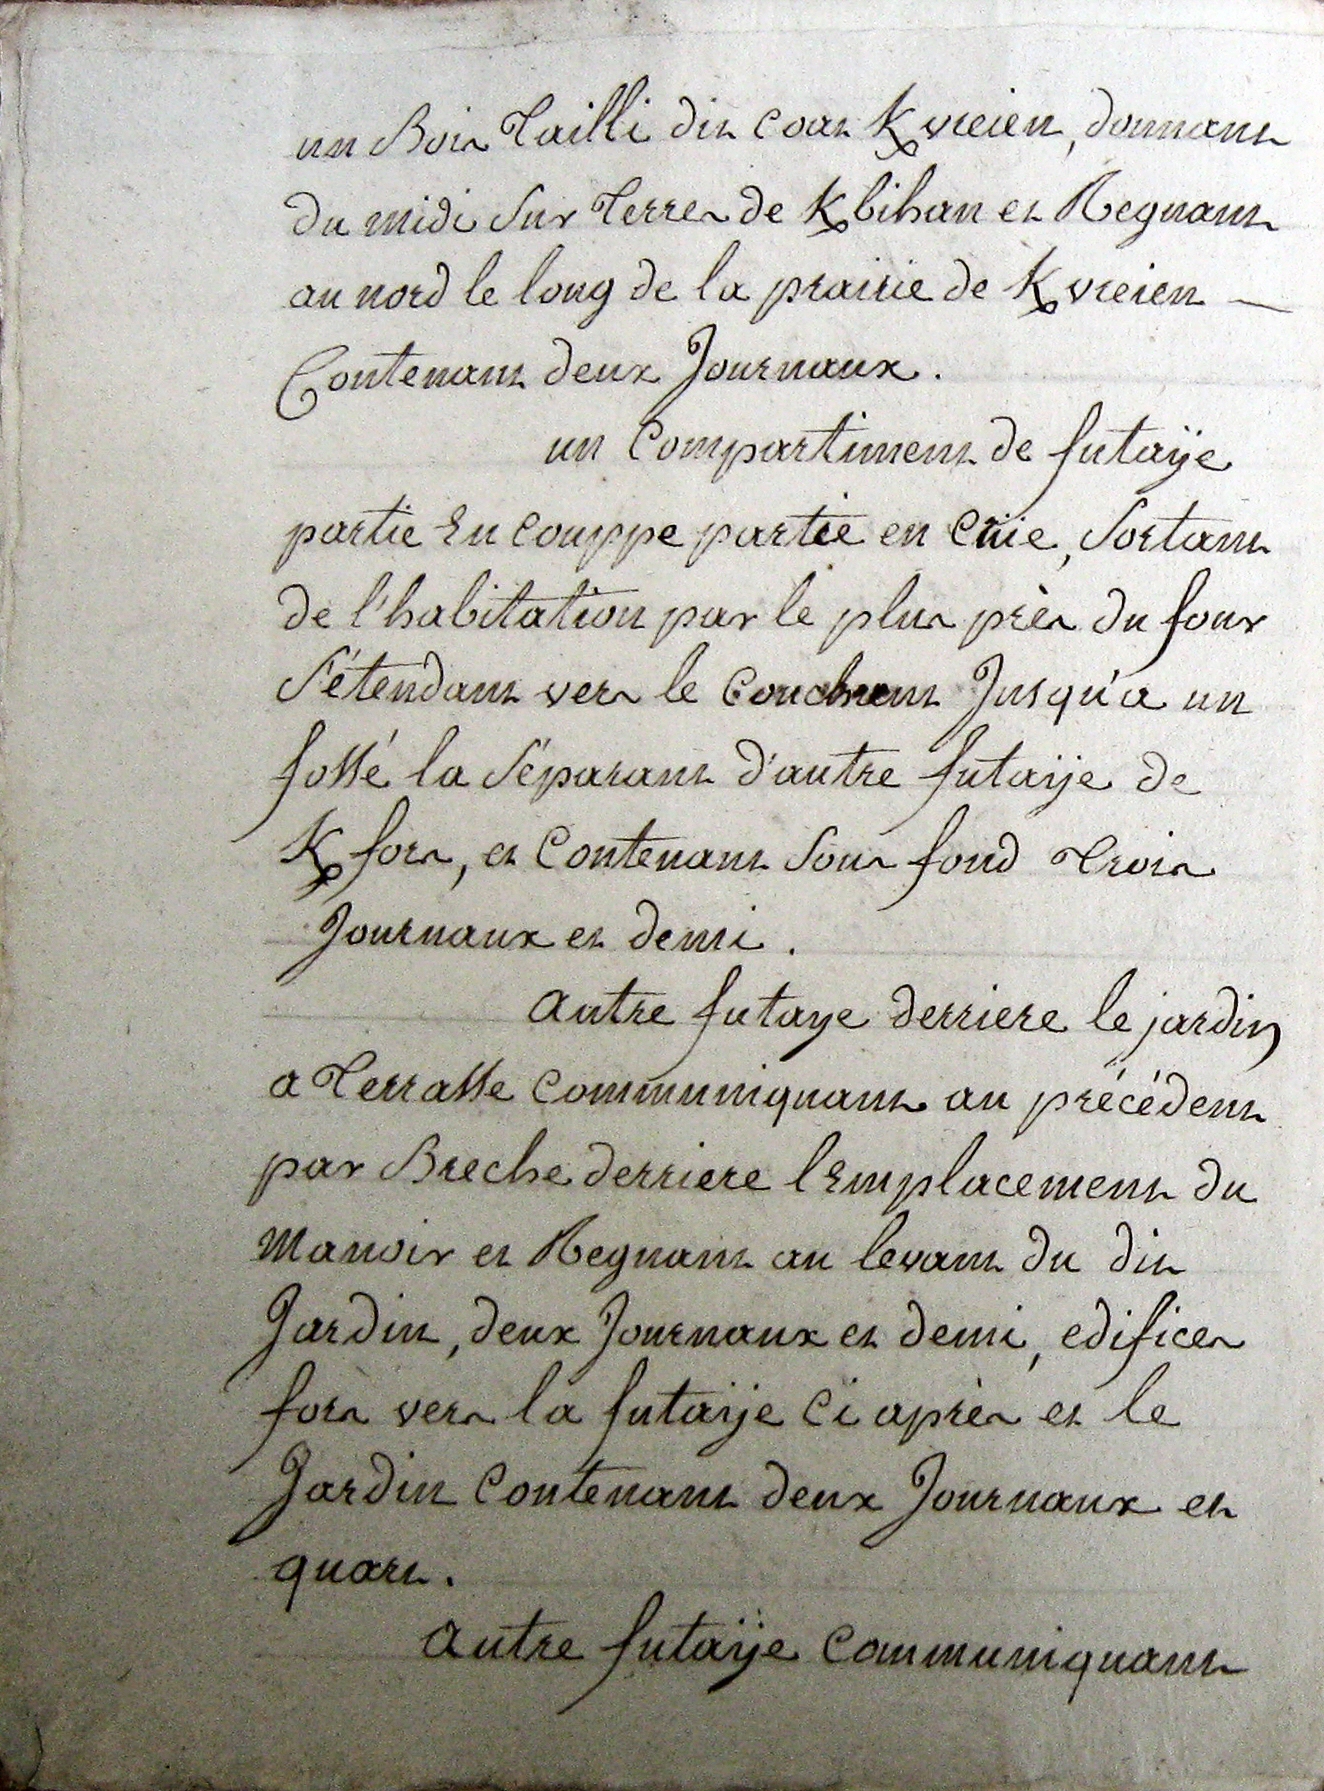 un Bois Tailli dit coat K/vreien, donnant
du midi sur Terres de K/bihan et Regnant
au nord le long de la prairie de K/vreien —
Contenant deux Journaux.
un Compartiment de futaÿe
partie En couppe partie en Crüe, Sortant
de l'habitation par le plus près du four
S'étendant vers le Couchant Jusqu'a un
fossé la Séparant d'autre futaÿe de
K/fors, et Contenant Sous fond Trois
Journaux et demi.
autre futaye derriere le jardin
a Terrasse Communiquant au précédent
par Breche derriere lEmplacement du
Manoir et Regnant au levant du dit
Jardin, deux Journaux et demi, edifices
fors vers la futaÿe Ci après et le
Jardin Contenant deux Journaux et
quart.
autre futaÿe Communiquant